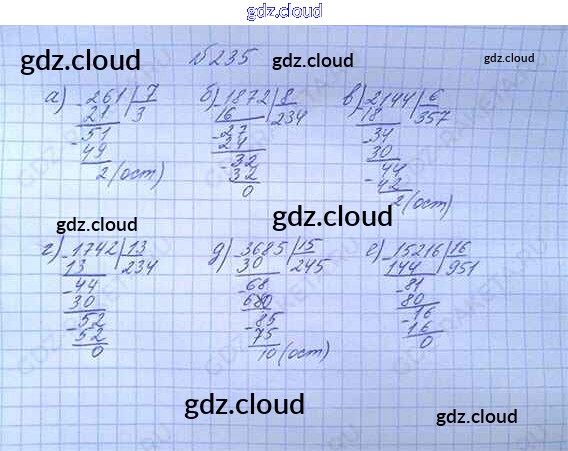 gdz.cloud
№235
gdz.cloud gdz.cloud gdz.cloud
а) -261|7 б) -1872|8 в) -2144|6
21 3 16 234 18 357
-51 -27 -34
49 24 30
2(ост) -32 44
32 -42
0 2(ост)
gdz.cloud gdz.cloud
г) -1742|13 д) -3685|15 е) -15216|16
13 234 30 245 144 951
-44 68 -81
30 680 80
-52 -85 -16
52 75 16
0 10(ост) 0
gdz.cloud gdz.cloud